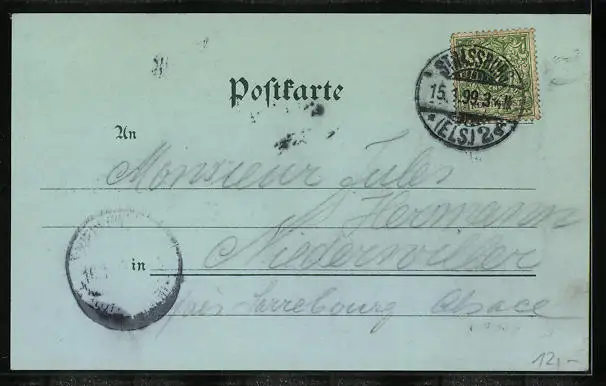 Postkarte
STRASSBURG
15.1.99.3-4N
*(ELS.)2d*
An
Monsieur Jules
Hermann
in Niederwiller
près Sarrebourg Alsace
12,-